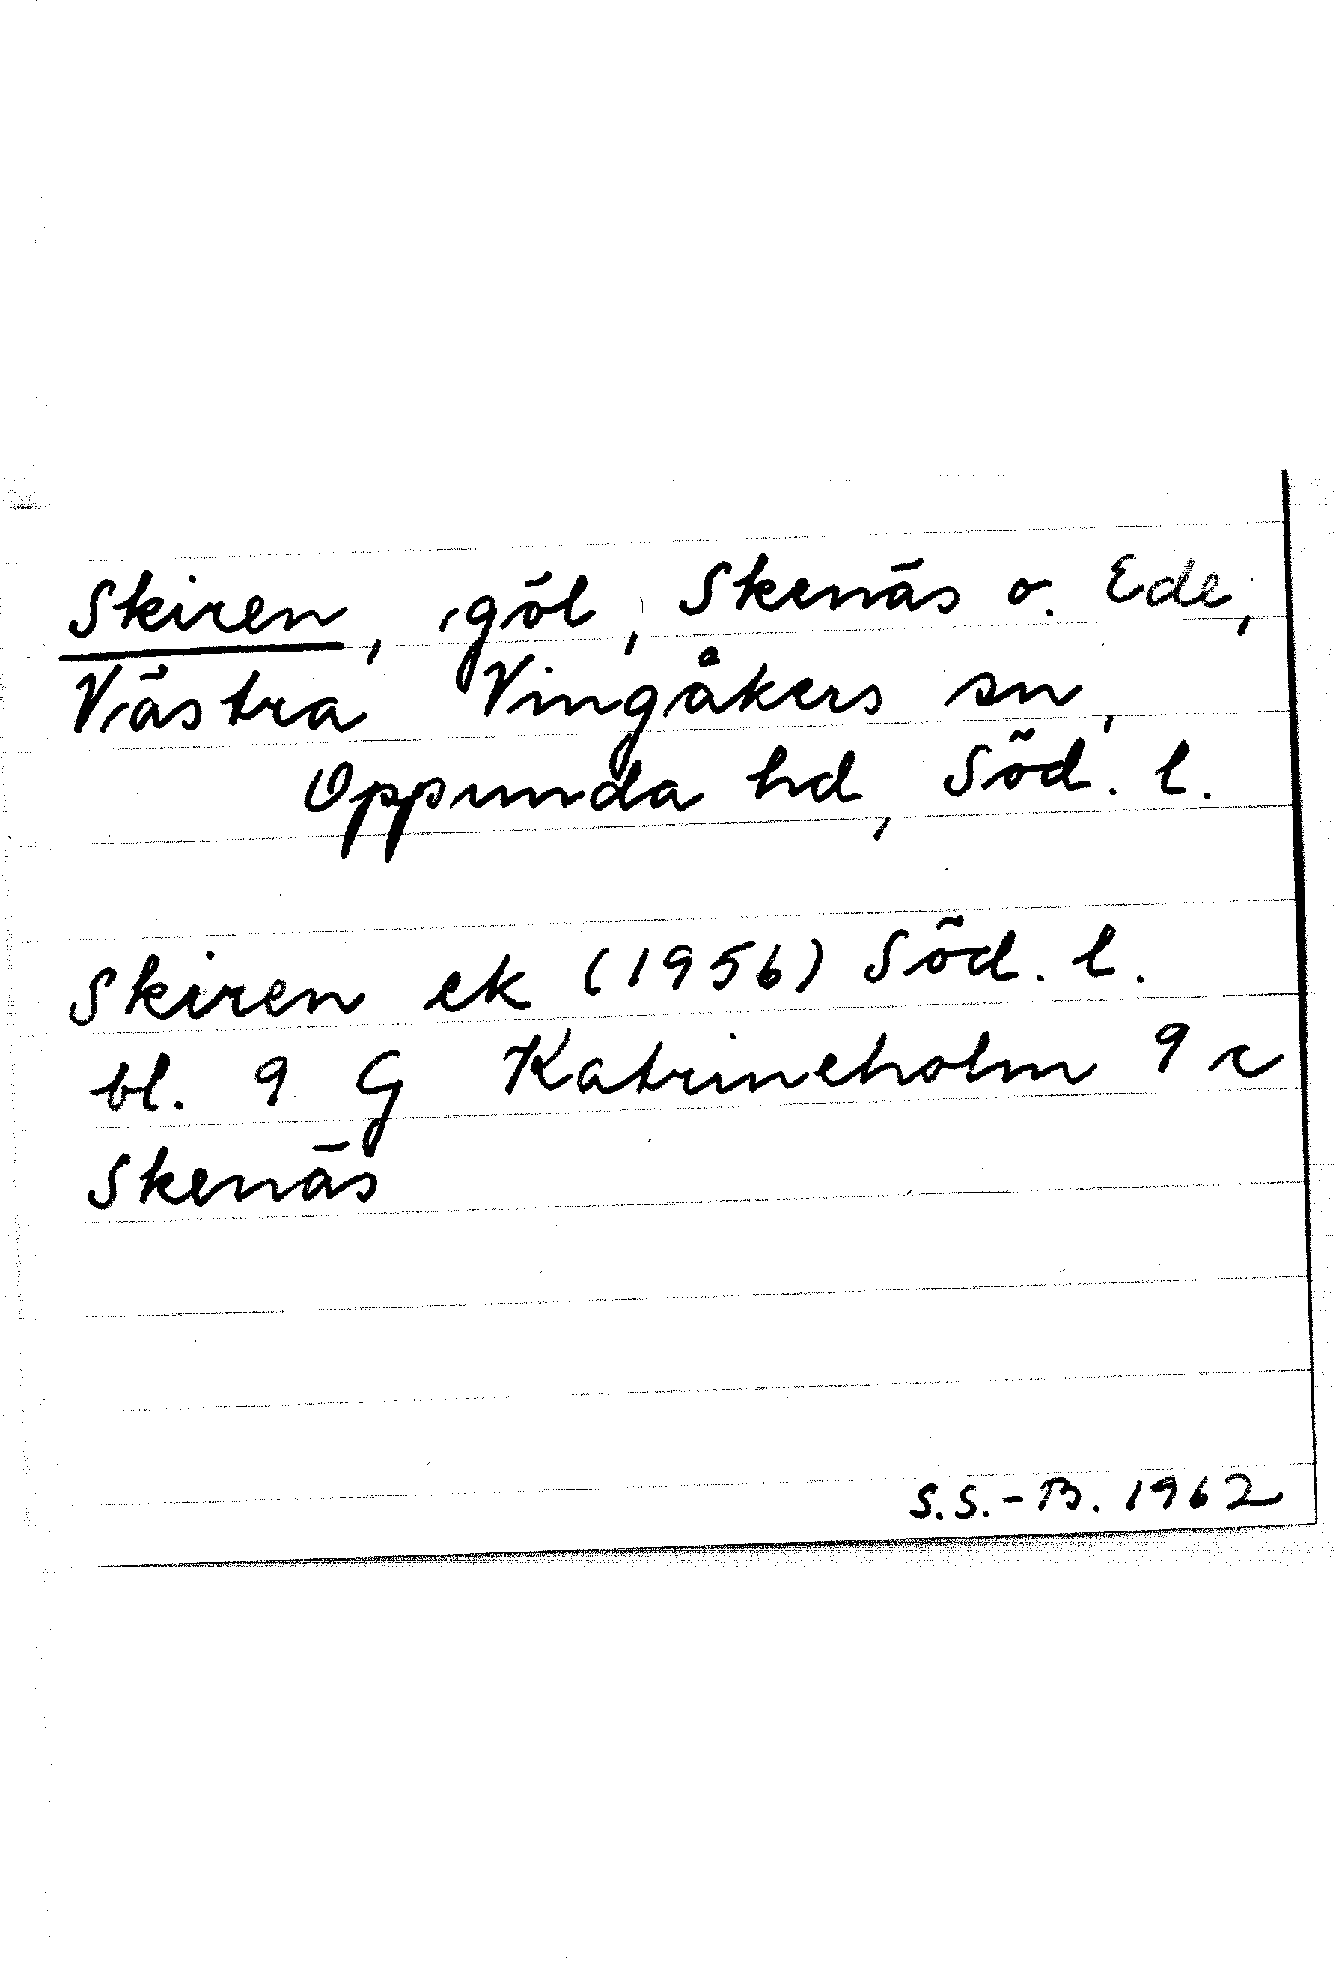 Skiren, göl, Skenäs o. Ede,
Västra Vingåkers sn,
Oppunda hd, Söd. l.
Skiren ek (1956) Söd. l.
bl. 9 G Katrineholm 9 c
Skenäs
S.S.-B. 1962